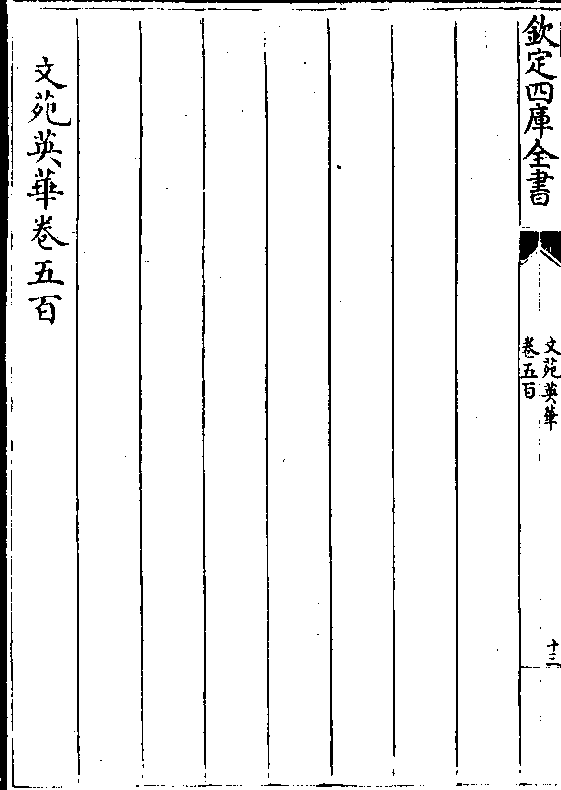 欽定四庫全書
文苑英華
卷五百
十三
文苑英華卷五百